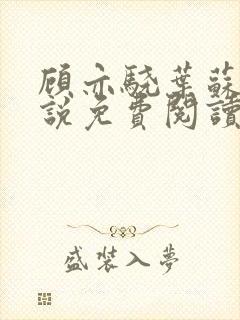 顾亦驍葉蘇
說免費閱讀
盛裝入夢